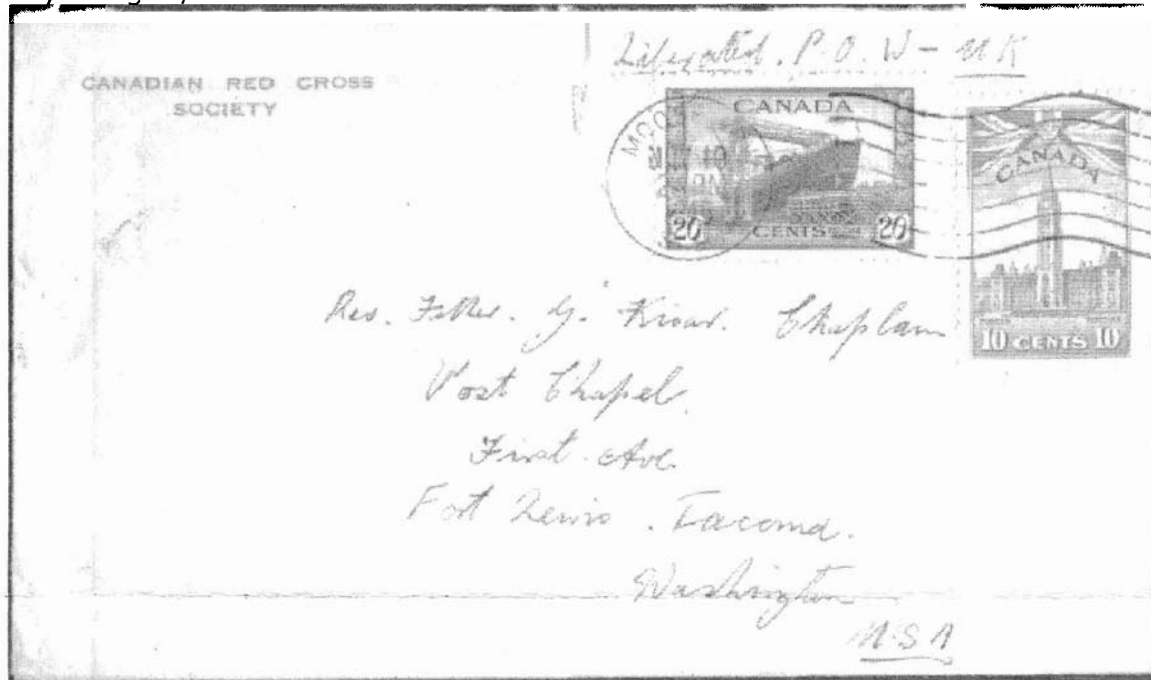 CANADIAN RED CROSS
SOCIETY
Liberated. P.O.W - UK
CANADA
20 CENTS 20
CANADA
10 CENTS 10
Rev. Father. G. Chaplain
Post Chapel.
First Ave.
Fort Lewis. Tacoma.
Washington
USA